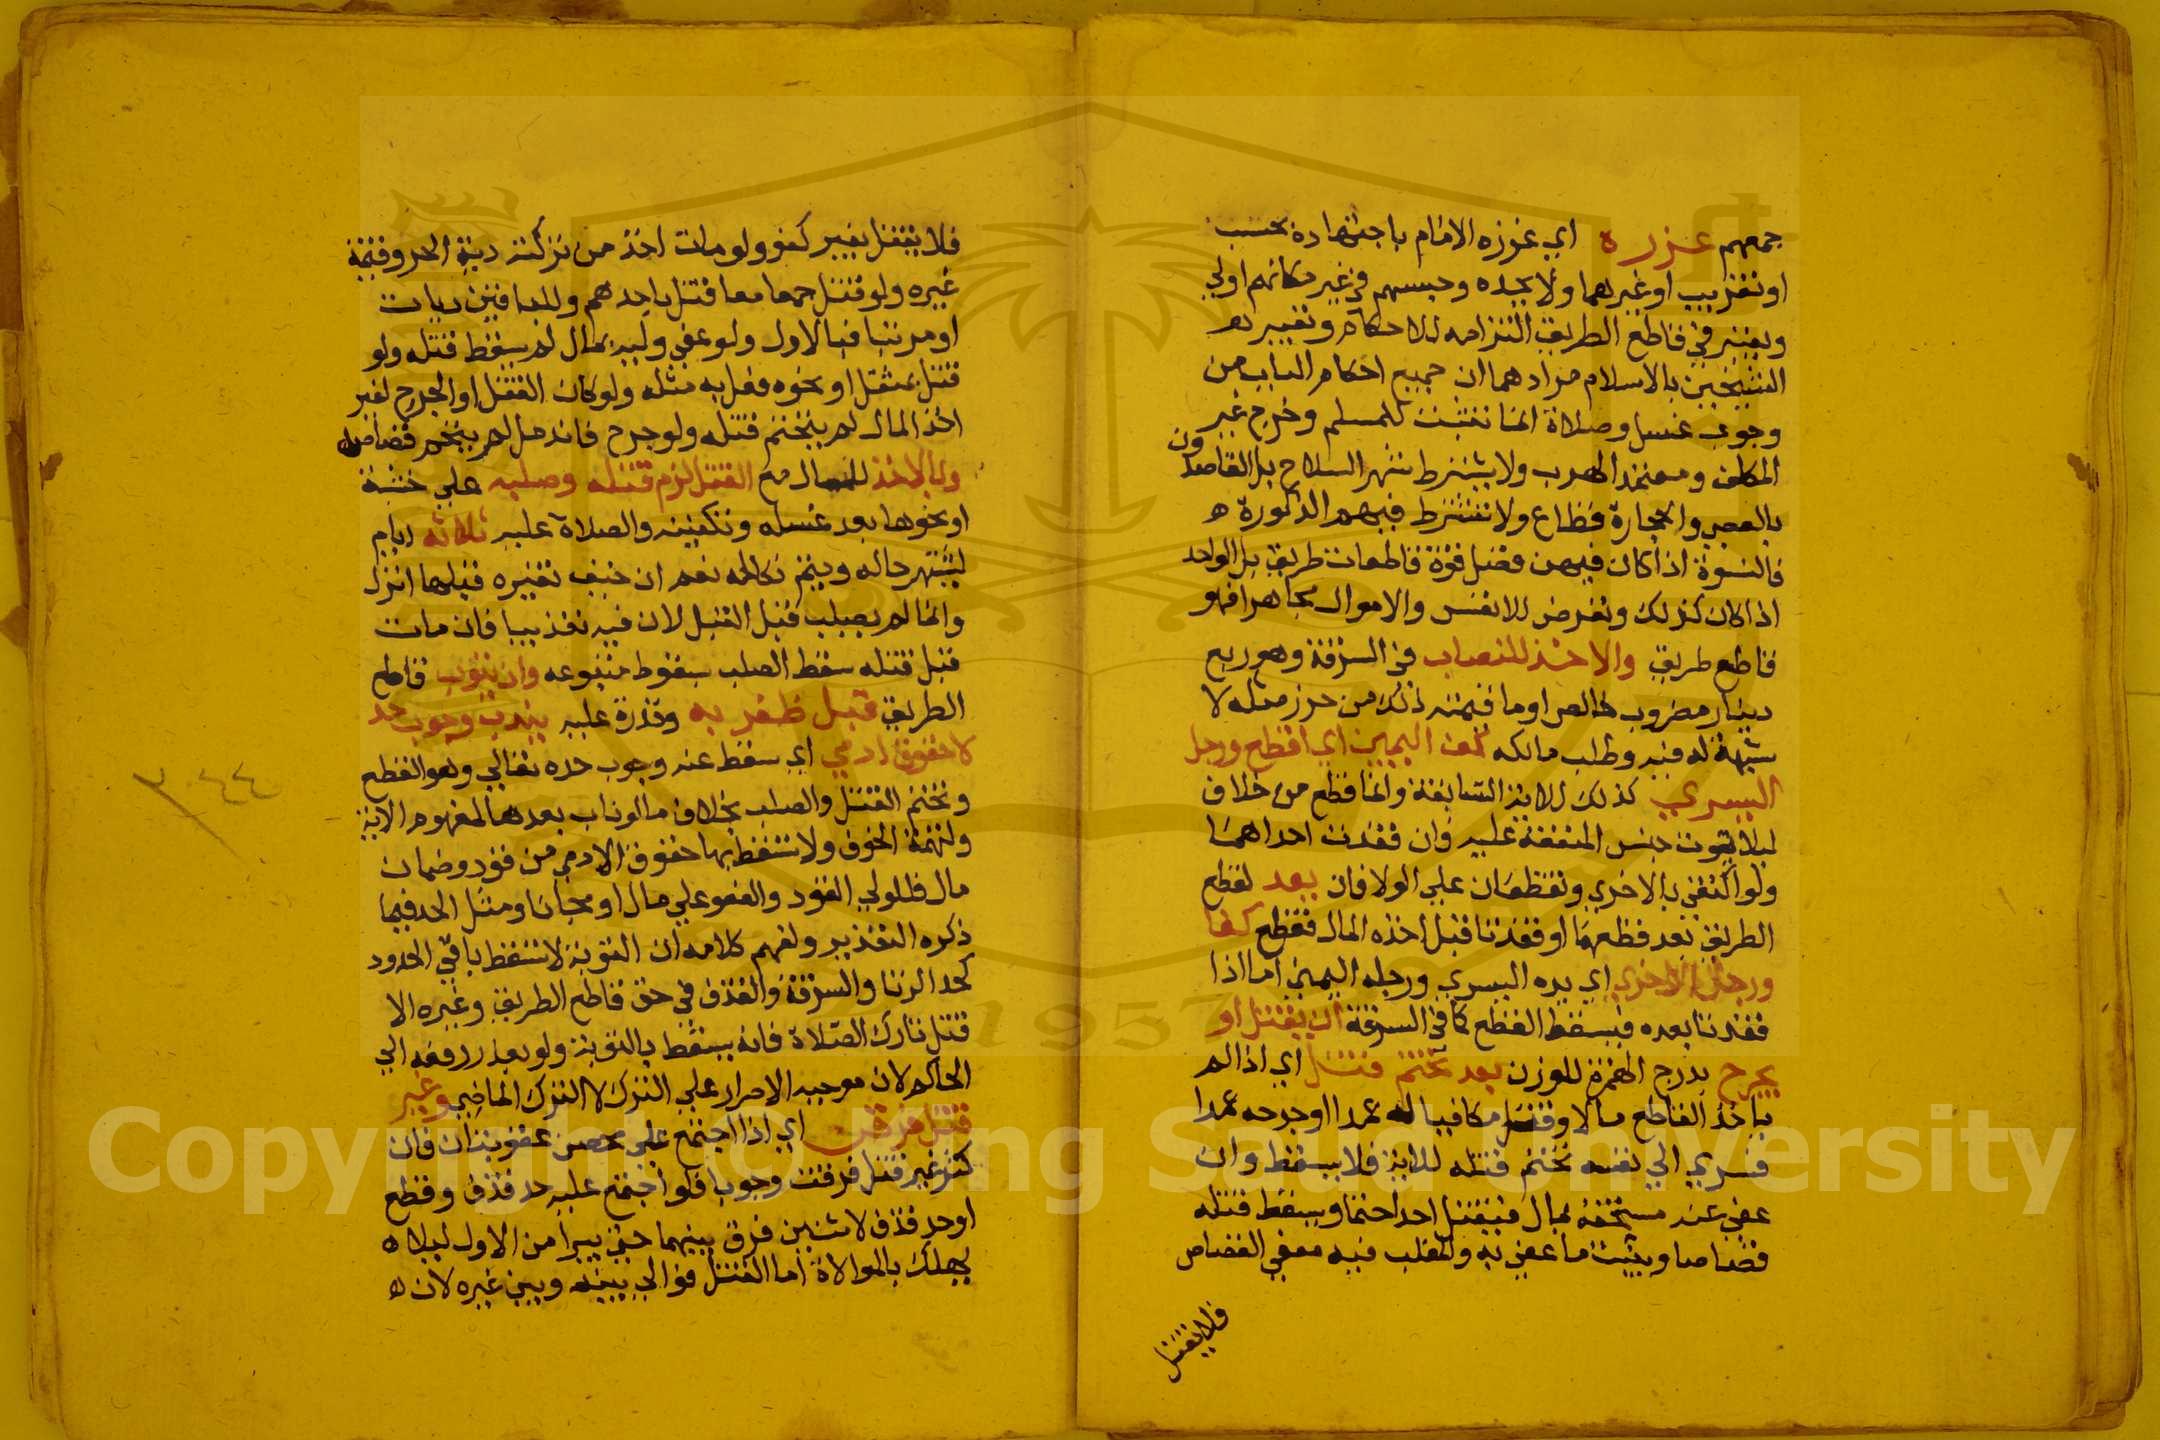 جمعهم عزره اي عزره الامام باجتهاده بحبس
او تغريب او غيرهما ولا يحده وحبسهم في غير مكانهم اولي
ويعتبر في قاطع الطريق التزامه للاحكام وتعبير
الشيخين بالاسلام مرادهما ان جميع احكام الباب من
وجوب غسل وصلاة انما تثبت للمسلم وخرج غير
المكلف ومعتمد الهرب ولا يشترط شهر السلاح بل القاصدون
بالعصي والحجارة قطاع ولا تشترط فيهم الذكورة ه
فالنسوة اذا كان فيهن فضل قوة قاطعات طريق بل الواحد
اذا كان كذلك وتعرض للانفس والاموال مجاهرا فهو
قاطع طريق والاخذ للنصاب في السرقة وهو ربع
دينار مضروب خالص او ما قيمته ذلك من حرز مثله لا
شبهة له فيه وطلب مالكه كف اليمين اي اقطع ورجل
اليسري كذلك للاية السابقة وانما قطع من خلاف
ليلا يفوت جنس المنفعة عليه فان فقدت احداهما
ولو اكتفي بالاخري وتقطعان علي الولا فان بعد لقطع
الطريق بعد قطعهما او فقدتا قبل اخذه المال فقطع كفا
ورجل الاخري اي يده اليسري ورجله اليمني اما اذا
فقدتا بعده فيسقط القطع كما في السرقة ان يقتل او
يجرح بدرج الهمزة للوزن بعد تحتم قتل اي اذا لم
ياخذ القاطع مالا وقتل مكافيا له عمدا او جرحه عمدا
فسري الي نفسه تحتم قتله للاية فلا يسقط وان
عفي عنه مستحقه بمال فيقتل احدا حتما ويسقط قتله
قصاصا ويثبت ما عفي به والمغلب فيه معني القصاص
فلا يقتل
فلا يقتل بغير كفو ولو مات اخذ من تركته دية الحر وقيمة
غيره ولو قتل جمعا معا قتل باحدهم وللباقين ديات
او مرتبا فبالاول ولو عفي وليه بمال لم يسقط قتله ولو
قتل بمثقل او نحوه فعل به مثله ولو كان القتل او الجرح لغير
اخذ المال لم يتحتم قتله ولو جرح فاندمل لم يتحتم قصاصه
وبالاخذ للمال مع القتل لزم قتله وصلبه علي خشبة
او نحوها بعد غسله وتكفينه والصلاة عليه ثلاثه ايام
ليشتهر حاله ويتم نكاله نعم ان خيف تغيره قبلها انزل
وانما لم يصلب قبل القتل لان فيه تعذيبا فان مات
قبل قتله سقط الصلب بسقوط متبوعه وان يتوب قاطع
الطريق قبل ظفر به وقدرة عليه وجوب حد
لا حقوق ادمي اي سقط عنه وجوب حده تعالي وهو القطع
وتحتم القتل والصلب بخلاف ما لو تاب بعدها لمفهوم الاية
ولتهمة الخوف ولا تسقط بها حقوق الادمي من قود وضمان
مال فللولي القود والعفو علي مال او مجانا ومثل الحد فيما
ذكره التعذير ولفهم كلامه ان التوبة لا تسقط باقي الحدود
كحد الزنا والسرقة والقذف في حق قاطع الطريق وغيره الا
قتل تارك الصلاة فانه يسقط بالتوبة ولو بعد رفعه الي
الحاكم لان موجبه الاصرار علي الترك لا الترك الماضي وغير
قتل فرقن اي اذا اجتمع علي شخص عقوبتان فان
كن غير قتل فرقت وجوبا فلو اجتمع عليه حد قذف وقطع
او حد قذف لاثنين فرق بينهما حتي يبرا من الاول ليلا ه
يهلك بالموالاة اما القتل فوالي بينه وبين غيره لان ه
1957
Copyright © King Saud University